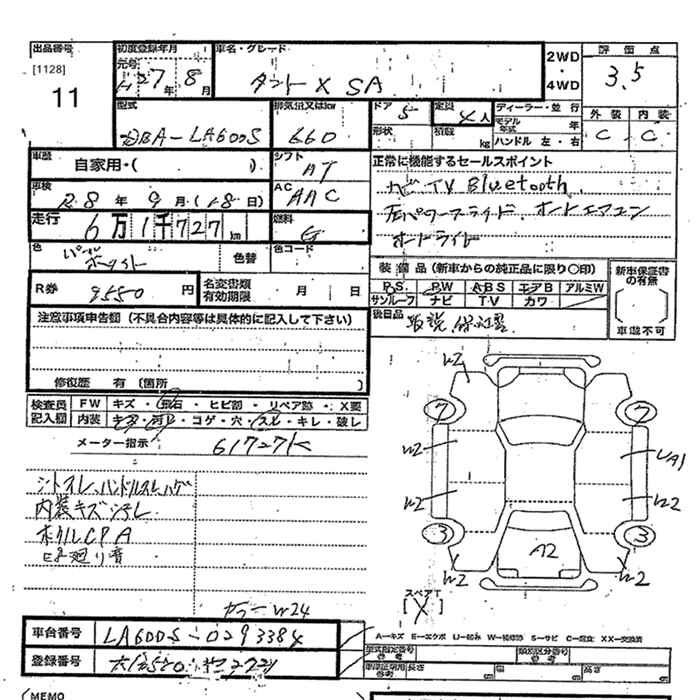 出品番号
[1128]
11
初度登録年月
元号
H 27年 8月
車名・グレード
タント X SA
2WD
・
4WD
評価点
3.5
型式
DBA-LA600S
排気量又はkw
660
ドア
5
定員
4人
形状
積載
kg
ディーラー・並行
モデル年式 年
ハンドル 左・右
外装
内装
C
C
車歴
自家用・( )
シフト
AT
車検
R8年 9月(18日)
AC
AAC
走行
6万1千727km
燃料
G
正常に機能するセールスポイント
ナビ TV Bluetooth
左パワースライド、オートエアコン
オートライト
色
パール
ホワイト
色替
色コード
装備品(新車からの純正品に限り〇印)
P.S. P.W ABS エアB アルミW
サンルーフ ナビ T.V カワ
新車保証書の有無
車譲不可
R券
9550円
名変書類
有効期限
月
日
後日品
取説、保証書
注意事項申告欄(不具合内容等は具体的に記入して下さい)
修復歴 有(箇所 )
検査員
記入欄
FW
キズ・飛石・ヒビ割・リペア跡・X要
内装
キズ・汚れ・コゲ・穴・スレ・キレ・破レ
メーター指示
61727K
シートスレ、ハンドルスレ、ハゲ
内装キズ汚レ
ホイルCPA
カラーW24
W2
7
7
W2
UA1
W2
W2
3
3
A2
W2
W2
スペアT
[X]
車台番号
LA600S-0293384
登録番号
A-キズ E-エクボ U-凹み W-補修跡 S-サビ C-腐食 XX-交換済
型式指定番号
参考
類別区分番号
参考
車検証明用
参考
長さ
幅
高さ
MEMO